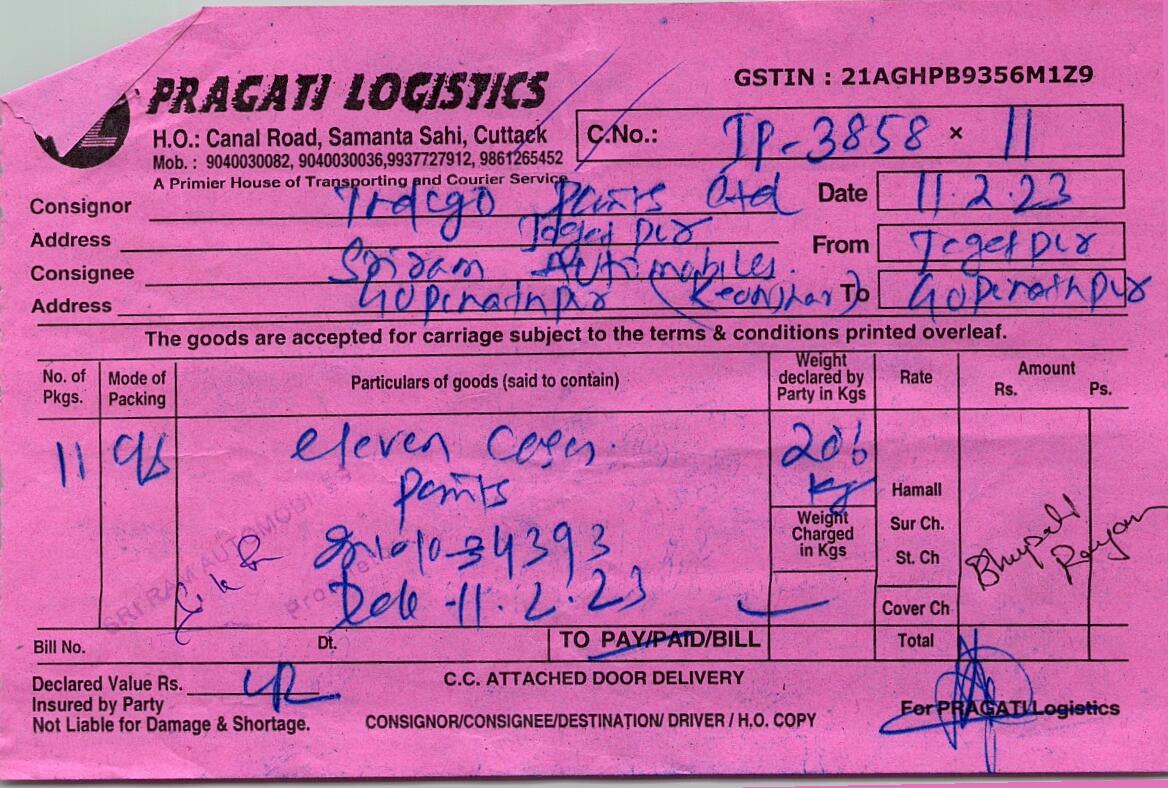 PRAGATI LOGISTICS
GSTIN : 21AGHPB9356M1Z9
H.O.: Canal Road, Samanta Sahi, Cuttack
Mob. : 9040030082, 9040030036,9937727912, 9861265452
A Primier House of Transporting and Courier Service
C.No.: IP-3858 × 11
Consignor Paints Ltd
Date 11.2.23
Address
From
Consignee Sriram Automobiles.
Address Gopinathpur (Keonjhar)
To Gopinathpur
The goods are accepted for carriage subject to the terms & conditions printed overleaf.
No. of Pkgs. Mode of Packing Particulars of goods (said to contain) Weight declared by Party in Kgs Rate Amount Rs. Ps.
11 eleven Cases. 206 kg
Paints
Hamall
Weight Charged in Kgs
Sur Ch.
34393
St. Ch
Bhupati
Date -11.2.23
Cover Ch
SRI RAM AUTOMOBILES
Bill No. Dt. TO PAY/PAID/BILL Total
Declared Value Rs.
C.C. ATTACHED DOOR DELIVERY
Insured by Party
Not Liable for Damage & Shortage.
CONSIGNOR/CONSIGNEE/DESTINATION/ DRIVER / H.O. COPY
For PRAGATI Logistics